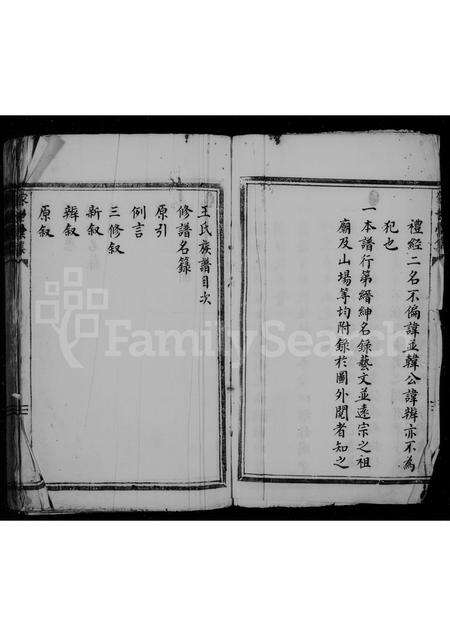 禮經二名不偏諱並韓公諱辨亦不為
犯也
一本譜行第縉紳名錄藝文並遠宗之祖
廟及山場等均附錄於圖外閱者知之
王氏族譜目次
修譜名錄
原引
例言
三修叙
新叙
舊叙
原叙
FamilySearch